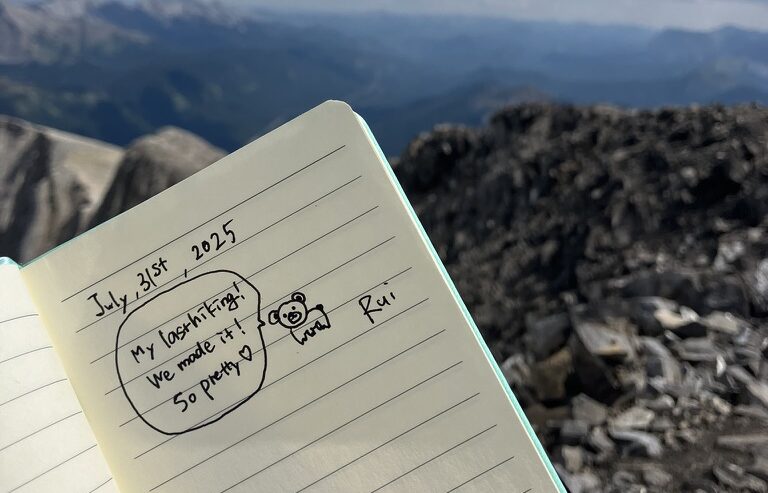 July, 31st, 2025
My last hiking!
We made it!
So pretty♡
Rui